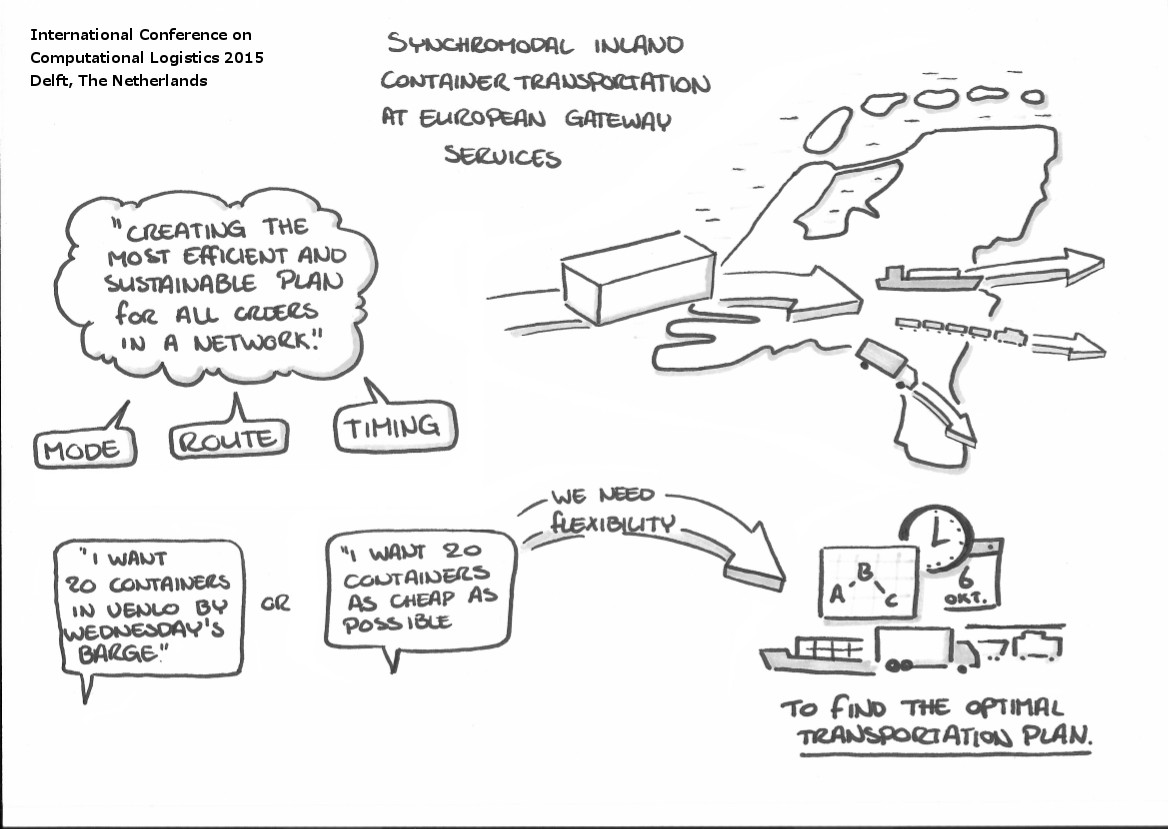 International Conference on
Computational Logistics 2015
Delft, The Netherlands
SYNCHROMODAL INLAND
CONTAINER TRANSPORTATION
AT EUROPEAN GATEWAY
SERVICES
"CREATING THE
MOST EFFICIENT AND
SUSTAINABLE PLAN
FOR ALL ORDERS
IN A NETWORK."
MODE
ROUTE
TIMING
"I WANT
20 CONTAINERS
IN VENLO BY
WEDNESDAY'S
BARGE."
OR
"I WANT 20
CONTAINERS
AS CHEAP AS
POSSIBLE
WE NEED
FLEXIBILITY
A B C
6
OKT.
TO FIND THE OPTIMAL
TRANSPORTATION PLAN.